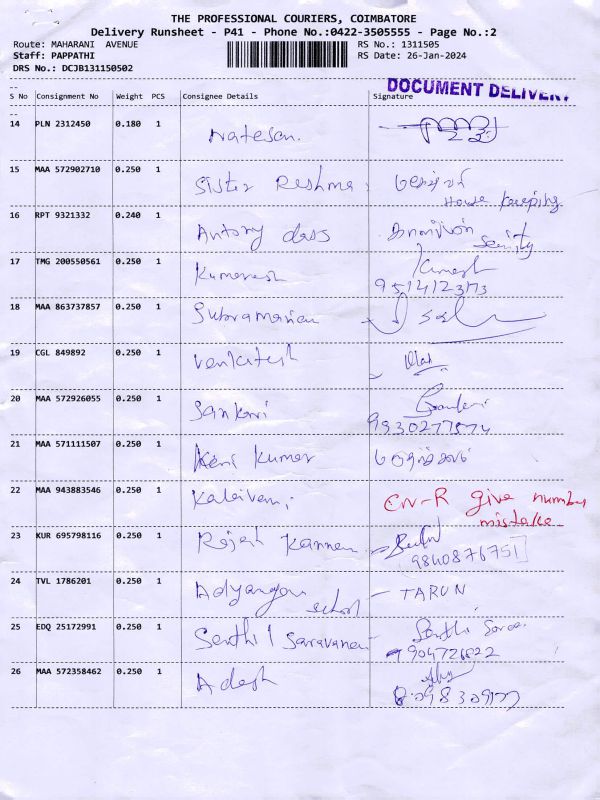 THE PROFESSIONAL COURIERS, COIMBATORE
Delivery Runsheet - P41 - Phone No.:0422-3505555 - Page No.:2
Route: MAHARANI AVENUE RS No.: 1311505
Staff: PAPPATHI RS Date: 26-Jan-2024
DRS No.: DCJB131150502
DOCUMENT DELIVERY
S No Consignment No Weight PCS Consignee Details Signature
14 PLN 2312450 0.180 1 Natesan.
15 MAA 572902710 0.250 1 Sister Reshma
House keeping
16 RPT 9321332 0.240 1 Antony dass
Security
17 TMG 200550561 0.250 1 Kumaresh
18 MAA 863737857 0.250 1 Subramanian
19 CGL 849892 0.250 1 Venkatesh
20 MAA 572926055 0.250 1 Sankari
9930277574
21 MAA 571111507 0.250 1 Kumar
22 MAA 943883546 0.250 1 Kaleivani CN-R give number
mistake
23 KUR 695798116 0.250 1 Rajesh Kannan
9840876751
24 TVL 1786201 0.250 1 - TARUN
School
25 EDQ 25172991 0.250 1 Senthil Saravanan
904726622
26 MAA 572358462 0.250 1 Adesh